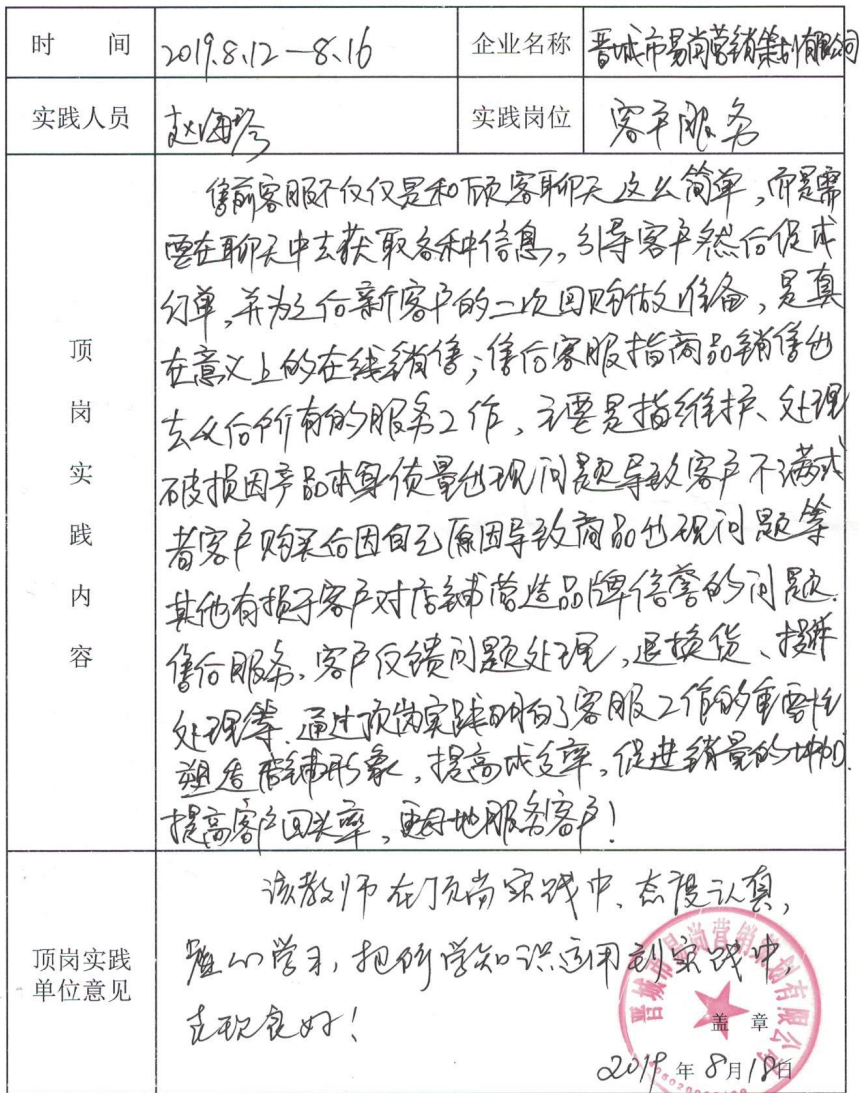 时 间 2019.8.12—8.16 企业名称 晋城市易尚营销策划有限公司
实践人员 赵海琴 实践岗位 客户服务
顶岗实践内容
售前客服不仅仅是和顾客聊天这么简单,而是需
要在聊天中去获取各种信息,引导客户然后促成
订单,并为之后新客户的二次回购做准备,是真
在意义上的在线销售;售后客服指商品销售出
去以后所有的服务工作,主要是指维护、处理
破损因产品本身质量出现问题导致客户不满或
者客户购买后因自己原因导致商品出现问题等
其他有损于客户对店铺营造品牌信誉的问题.
售后服务,客户反馈问题处理,退换货、投诉
处理等.通过顶岗实践明白了客服工作的重要性
塑造店铺形象,提高成交率,促进销量的增加.
提高客户回头率,更好地服务客户!
顶岗实践
单位意见
该教师在顶岗实践中,态度认真,
虚心学习,把所学知识运用到实践中,
表现良好!
晋城市易尚营销策划有限公司
盖 章
2019年8月18日